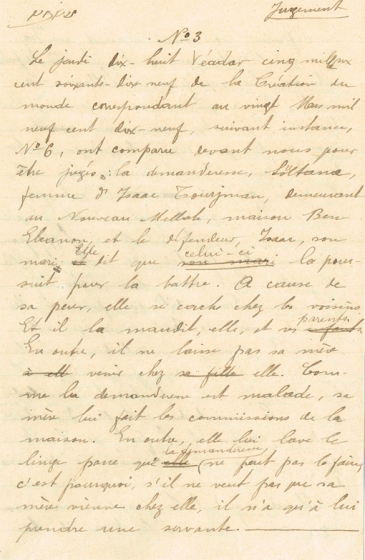 Jugement
No 3
Le jeudi dix-huit Véadar cinq mille six
cent soixante-dix-neuf de la Création du
monde correspondant au vingt Mars mil
neuf cent dix-neuf, suivant instance,
No 6, ont comparu devant nous pour
être jugés: la demanderesse, Soltana,
femme d'Isaac Tourjman, demeurant
au Nouveau Mellah, maison Ben
Eleazar, et le défendeur, Isaac, son
mari. Elle dit que celui-ci son mari la pour-
suit pour la battre. A cause de
sa peur, elle se cache chez les voisins
Et il la maudit, elle, et ses parents
En outre, il ne laisse pas sa mère
à elle venir chez sa fille elle. Com-
me la demanderesse est malade, sa
mère lui fait les commissions de la
maison. En outre, elle lui lave le
linge parce que elle la demanderesse (ne peut pas le faire,
c'est pourquoi, s'il ne veut pas que sa
mère vienne chez elle, il n'a qu'à lui
prendre une servante.